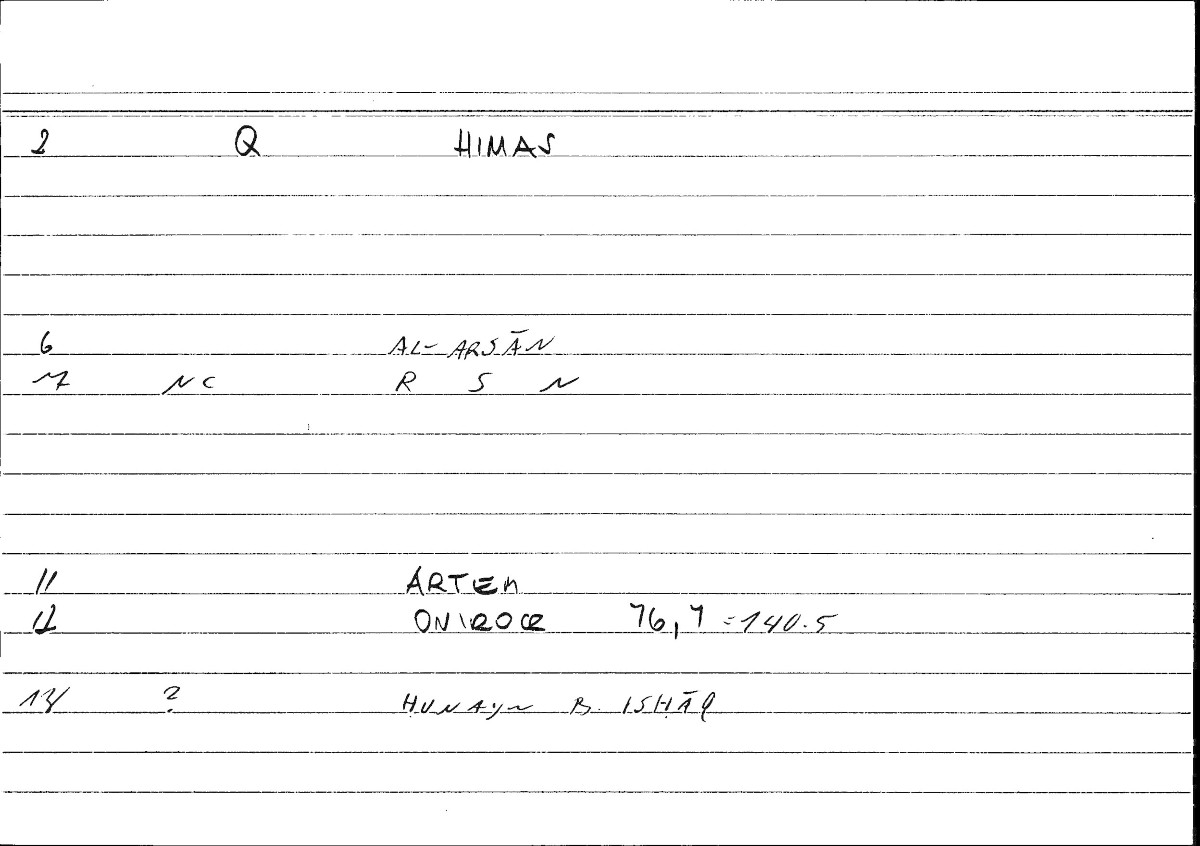 2 Q HIMAS
6 AL-ARSĀN
7 NC R S N
11 ARTEM
12 ONIROCR 76,7 = 140.5
14 ? ḤUNAYN B. ISḤĀQ